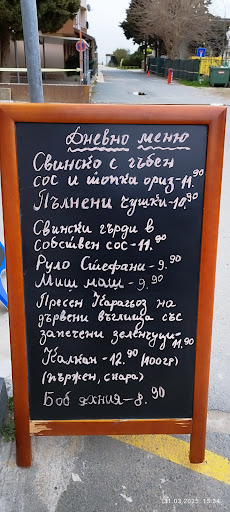 Дневно меню
Свинско с гъбен
сос и топка ориз-11.90
Пълнени чушки-10.90
Свински гърди в
собствен сос-11.90
Руло Стефани-9.90
Миш маш-9.90
Пресен Карагьоз на
дървени въглища със
запечени зеленчуци-11.90
Калкан-12.90 (100гр)
(пържен, скара)
Боб яхния-8.90
31.03.2025 15:34